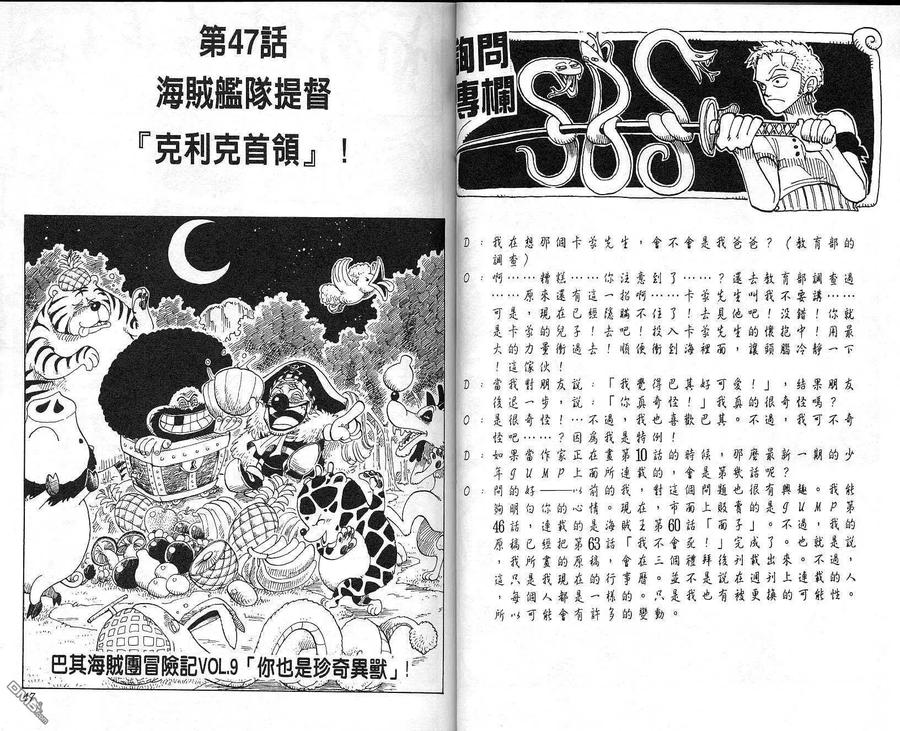 詢問
專欄
D：我在想那個卡茲先生，會不會是我爸爸？（教育部的
調查）
O：啊……糟糕……你注意到了……？還去教育部調查過
……原來還有這一招啊……卡茲先生叫我不要講……
可是，現在已經隱瞞不住了！去見他吧！沒錯！你就
是卡茲的兒子！去吧！投入卡茲先生的懷抱中！用最
大的力量衝過去！順便衝到海裡面，讓頭腦冷靜一下
！這傢伙！
D：當我對朋友說：「我覺得巴其好可愛！」，結果朋友
後退一步，說：「你真奇怪！」我真的很奇怪嗎？
O：是很奇怪！…不過，我也喜歡巴其。不過，我可不奇
怪吧……？因為我是特例！
D：如果當作家正在畫第10話的時候，那麼最新一期的少
年JUMP上面所連載的，會是第幾話呢？
O：問的好——以前的我，對這個問題也很有興趣。我能
夠明白你的心情。現在，市面上販賣的是JUMP第
46話，連載的是海賊王第60話「面子」。不過，我的
原稿已經把第63話「我不會死！」完成了。也就是說
，我所畫的原稿，會在三個禮拜後刊載出來。不過，
這只是我現在的行事曆。並不是說在週刊上連載的人
，每個人都是一樣的。只是我也有被更換的可能性。
所以可能會有許多的變動。
第47話
海賊艦隊提督
『克利克首領』！
巴其海賊團冒險記VOL.9「你也是珍奇異獸」！
47